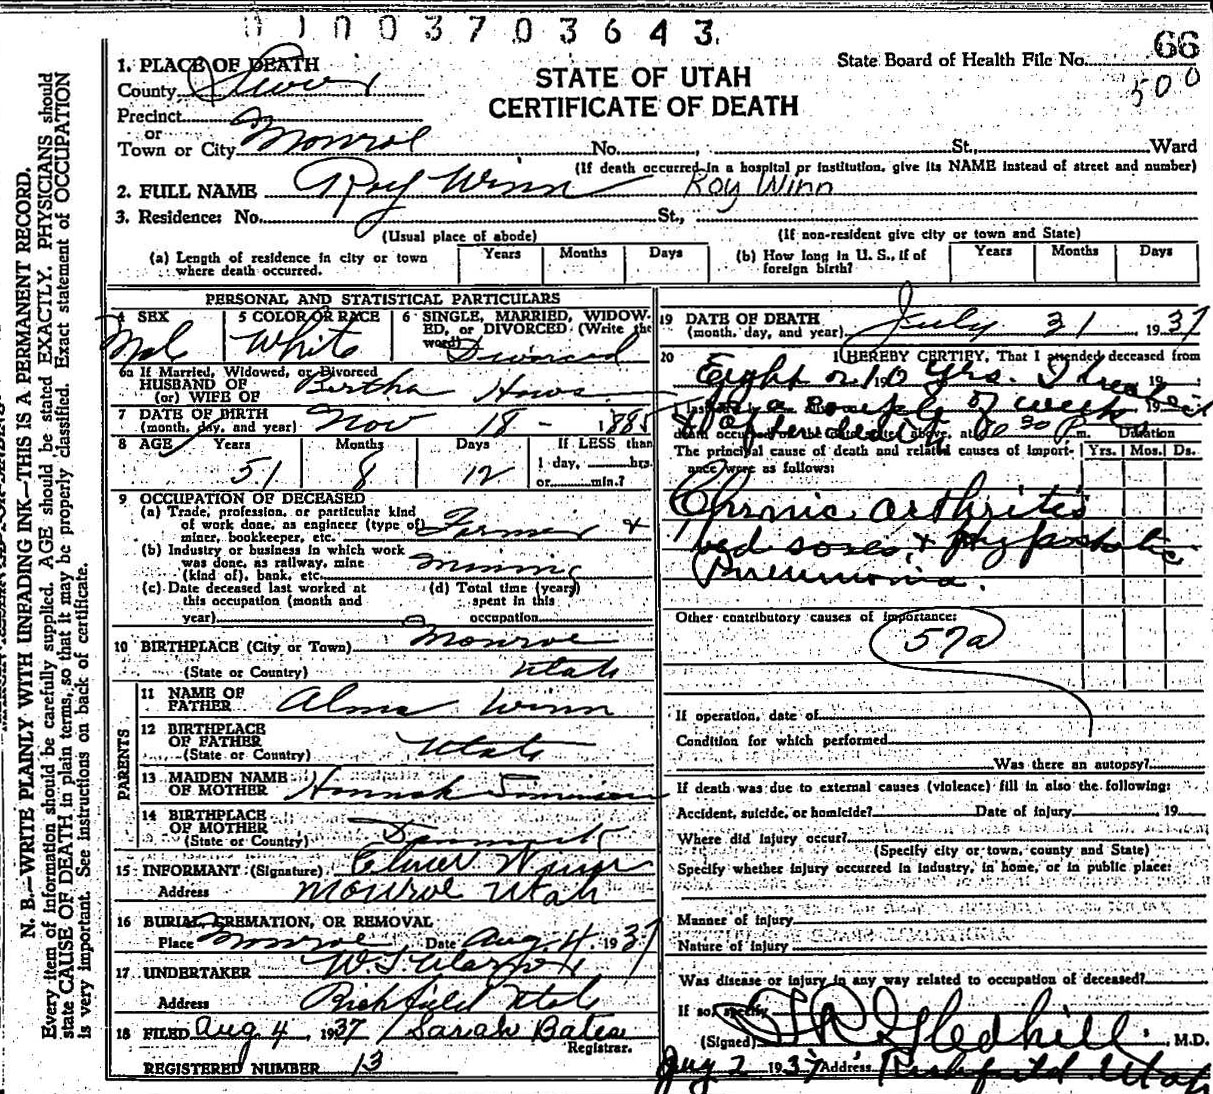 01003703643
66
State Board of Health File No.
500
1. PLACE OF DEATH
STATE OF UTAH
CERTIFICATE OF DEATH
County Sevier
Precinct
or
Town or City Monroe No. St. Ward
(If death occurred in a hospital or institution, give its NAME instead of street and number)
2. FULL NAME Roy Winn Roy Winn
3. Residence: No. St.,
(Usual place of abode) (If non-resident give city or town and State)
(a) Length of residence in city or town where death occurred. Years Months Days
(b) How long in U. S., if of foreign birth? Years Months Days
PERSONAL AND STATISTICAL PARTICULARS
4 SEX Male
5 COLOR OR RACE White
6 SINGLE, MARRIED, WIDOWED, or DIVORCED (Write the word) Divorced
6a If Married, Widowed, or Divorced
HUSBAND OF
(or) WIFE OF Bertha
7 DATE OF BIRTH
(month, day, and year) Nov 18 - 1885
8 AGE Years Months Days If LESS than
51 8 12 1 day, hrs.
or min.?
9 OCCUPATION OF DECEASED
(a) Trade, profession, or particular kind
of work done, as engineer (type of)
miner, bookkeeper, etc. Farmer &
(b) Industry or business in which work
was done, as railway, mine
(kind of), bank, etc. Mining
(c) Date deceased last worked at
this occupation (month and
year)
(d) Total time (years)
spent in this
occupation
10 BIRTHPLACE (City or Town) Monroe
(State or Country) Utah
PARENTS
11 NAME OF
FATHER Alma Winn
12 BIRTHPLACE
OF FATHER
(State or Country) Utah
13 MAIDEN NAME
OF MOTHER Hannah
14 BIRTHPLACE
OF MOTHER
(State or Country) Denmark
15 INFORMANT (Signature) Elmer Winn
Address Monroe Utah
16 BURIAL, CREMATION, OR REMOVAL
Place Monroe, Date Aug. 4. 1937
17 UNDERTAKER
Address Richfield Utah
18 FILED Aug 4, 1937 Sarah Bates
Registrar.
REGISTERED NUMBER 13
19 DATE OF DEATH
(month, day, and year) July 31, 1937
20 I HEREBY CERTIFY, That I attended deceased from
Eight or 10 yrs. I treated
a couple of weeks
death occurred on the date stated above, at 30 P m. Duration
The principal cause of death and related causes of importance were as follows: Yrs. Mos. Ds.
Chronic arthritis
bed sores & hypostatic
Pneumonia.
Other contributory causes of importance:
57a
If operation, date of
Condition for which performed
Was there an autopsy?
If death was due to external causes (violence) fill in also the following:
Accident, suicide, or homicide? Date of injury , 19
Where did injury occur?
(Specify city or town, county and State)
Specify whether injury occurred in industry, in home, or in public place:
Manner of injury
Nature of injury
Was disease or injury in any way related to occupation of deceased?
If so, specify
(Signed) Gledhill, M.D.
Aug 2 1937 Address Richfield Utah
N. B.—WRITE PLAINLY WITH UNFADING INK—THIS IS A PERMANENT RECORD.
Every item of information should be carefully supplied. AGE should be stated EXACTLY. PHYSICIANS should
state CAUSE OF DEATH in plain terms, so that it may be properly classified. Exact statement of OCCUPATION
is very important. See instructions on back of certificate.